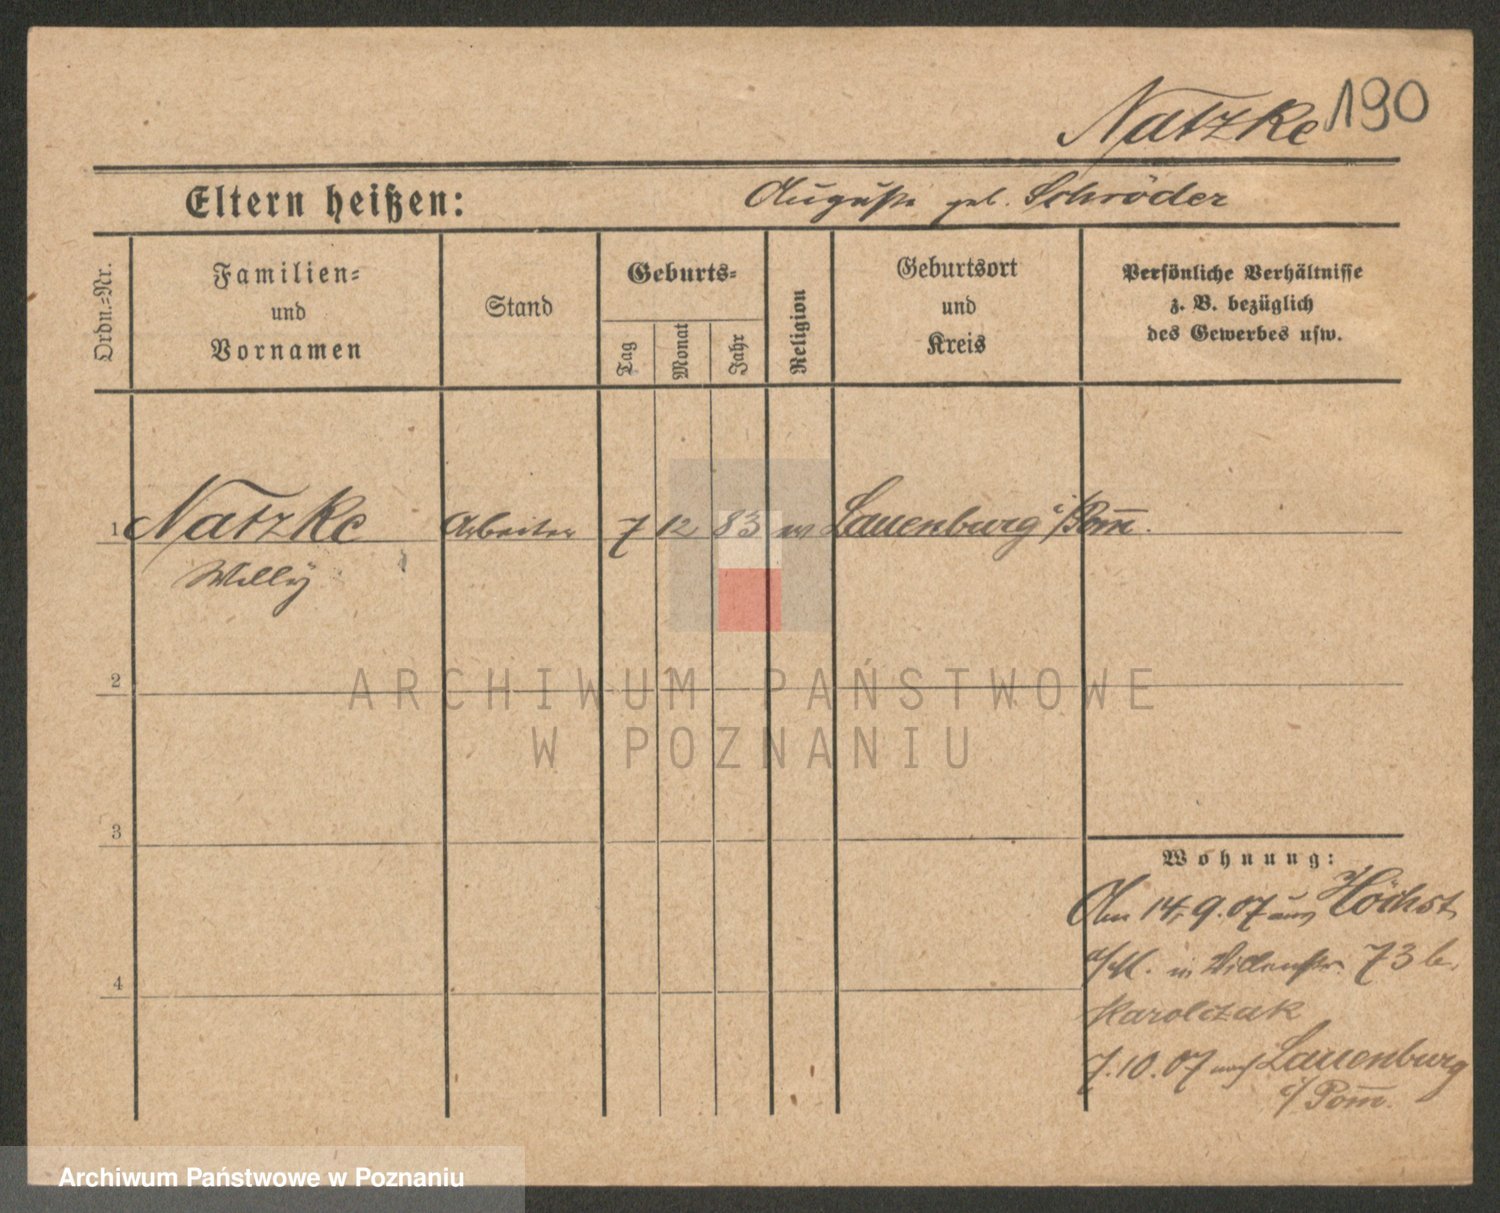 Natzke 190
Eltern heißen: Auguste geb. Schröder
Ordn.-Nr.
Familien-
und
Vornamen
Stand
Geburts-
Tag
Monat
Jahr
Religion
Geburtsort
und
Kreis
Persönliche Verhältnisse
z. B. bezüglich
des Gewerbes usw.
1 Natzke Arbeiter 7 12 83 ev Lauenburg i/Pom̅.
Willy
2
ARCHIWUM PAŃSTWOWE
W POZNANIU
3
Wohnung:
Am 14.9.07 aus Höchst
a/M. in 73 b.
4
Karolczak
7.10.07 nach Lauenburg
i/Pom̅.
Archiwum Państwowe w Poznaniu